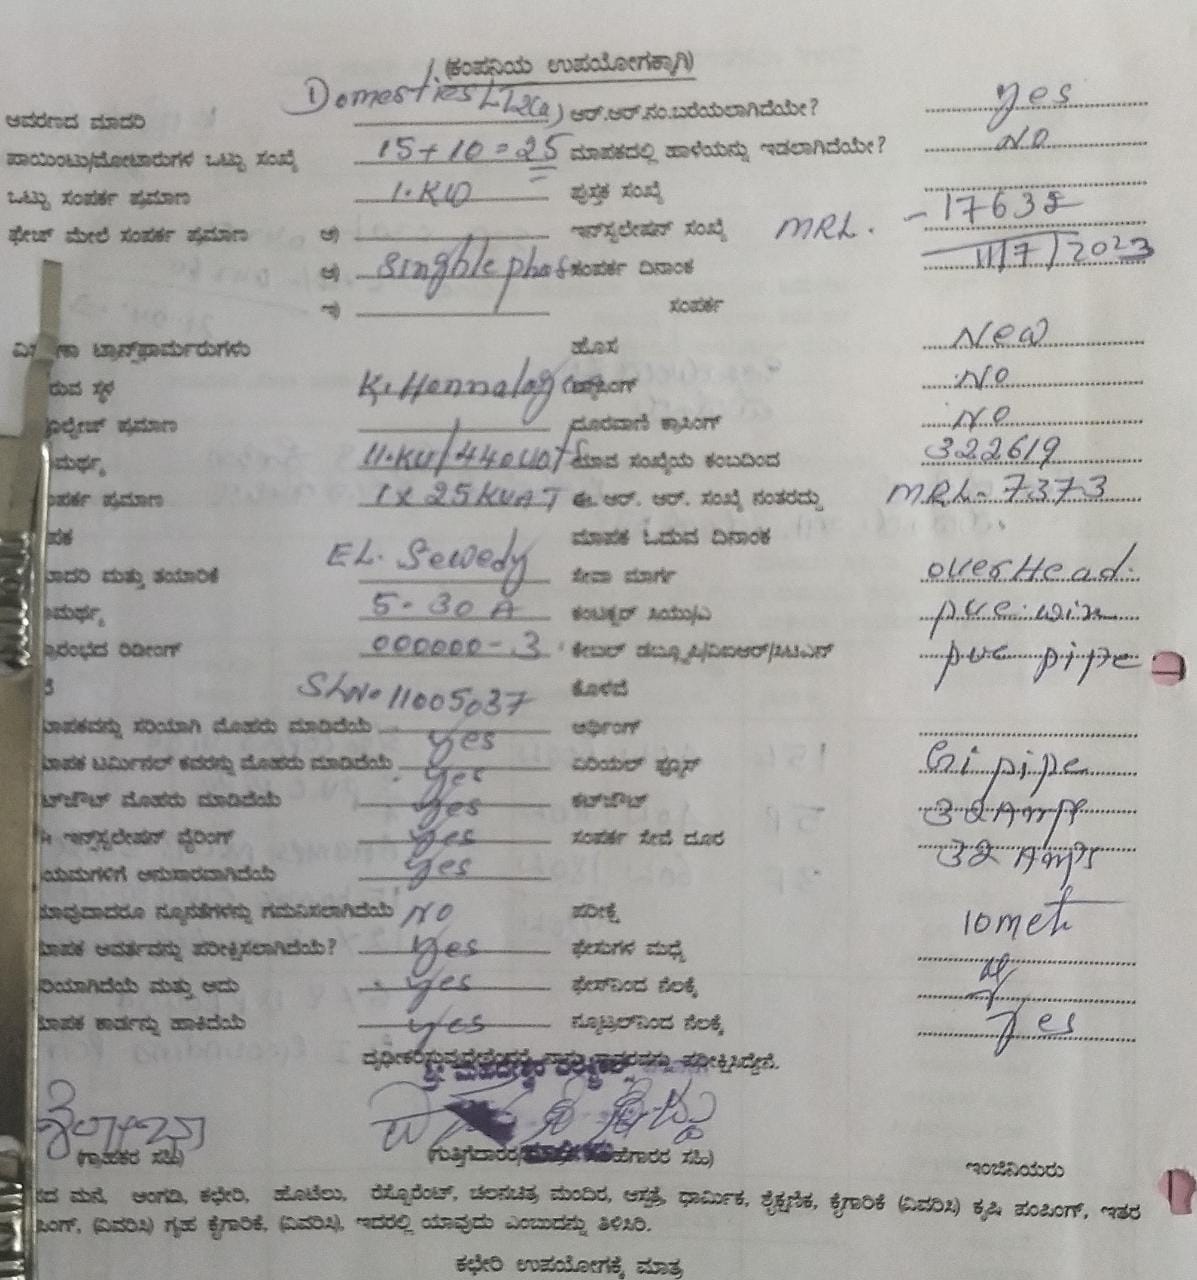 (ಕಂಪನಿಯ ಉಪಯೋಗಕ್ಕಾಗಿ)
ಆವರಣದ ಮಾದರಿ Domestics LT2(a) ಆರ್.ಆರ್.ನಂ.ಬರೆಯಲಾಗಿದೆಯೇ? yes
ಪಾಯಿಂಟು/ಮೋಟಾರುಗಳ ಒಟ್ಟು ಸಂಖ್ಯೆ 15+10=25 ಮಾಪಕದಲ್ಲಿ ಹಾಳೆಯನ್ನು ಇಡಲಾಗಿದೆಯೇ? No
ಒಟ್ಟು ಸಂಪರ್ಕ ಪ್ರಮಾಣ 1.KW ಪುಸ್ತಕ ಸಂಖ್ಯೆ
ಫೇಜ್ ಮೇಲೆ ಸಂಪರ್ಕ ಪ್ರಮಾಣ ಅ) ಇನ್‌ಸ್ಟಲೇಷನ್ ಸಂಖ್ಯೆ MRL. - 17632
ಆ) singhle phas ಸಂಪರ್ಕ ದಿನಾಂಕ 11/7/2023
ಇ) ಸಂಪರ್ಕ
ಟ್ರಾನ್ಸ್‌ಫಾರ್ಮರುಗಳು ಹೊಸ New
ರುವ ಸ್ಥಳ K. Honnalag ಕ್ರಾಸಿಂಗ್ No
ೋಲ್ಟೇಜ್ ಪ್ರಮಾಣ ದೂರವಾಣಿ ಕ್ರಾಸಿಂಗ್ No
ಮರ್ಥ್ಯ 11.KV/440volts ಯಾವ ಸಂಖ್ಯೆಯ ಕಂಬದಿಂದ 322619
ಂಪರ್ಕ ಪ್ರಮಾಣ 1x25KVAT ಈ. ಆರ್. ಆರ್. ಸಂಖ್ಯೆ ನಂತರದ್ದು MRL- 7373
ಪಕ ಮಾಪಕ ಓದುವ ದಿನಾಂಕ
ಾದರಿ ಮತ್ತು ತಯಾರಿಕೆ EL. Sewedy ಸೇವಾ ಮಾರ್ಗ over Head.
ಮರ್ಥ್ಯ 5-30 A ಕಂಟಕ್ಟರ್ ಸಿಯು/ಎ pvc. wire
್ರಾರಂಭದ ರಿಡೀಂಗ್ 000000-.3 ಕೇಬಲ್ ಡಬ್ಲ್ಯೂಪಿ/ವಿಐಆರ್/ಸಿಟಿಎಸ್ pvc pipe
Sl.No 11005037 ಕೊಳವೆ
ಾಪಕವನ್ನು ಸರಿಯಾಗಿ ಮೊಹರು ಮಾಡಿದೆಯೆ yes ಅರ್ಥಿಂಗ್
ಾಪಕ ಟರ್ಮಿನಲ್ ಕವರನ್ನು ಮೊಹರು ಮಾಡಿದೆಯೆ yes ಏರಿಯಲ್ ಫ್ಯೂಸ್ Gi pipe
ಟ್‌ಔಟ್ ಮೊಹರು ಮಾಡಿದೆಯೆ yes ಕಟ್‌ಔಟ್ 32 Amps
ಇನ್‌ಸ್ಟಲೇಷನ್ ವೈರಿಂಗ್ yes ಸಂಪರ್ಕ ಸೇವೆ ದೂರ 32 Amps
ಯಮಗಳಿಗೆ ಅನುಸಾರವಾಗಿದೆಯೆ yes
ಾವುದಾದರೂ ನ್ಯೂನತೆಗಳನ್ನು ಗಮನಿಸಲಾಗಿದೆಯೆ No ಪರೀಕ್ಷೆ 10 met
ಾಪಕ ಆವರ್ತವನ್ನು ಪರೀಕ್ಷಿಸಲಾಗಿದೆಯೆ? yes ಫೇಸುಗಳ ಮಧ್ಯೆ
ರಿಯಾಗಿದೆಯೆ ಮತ್ತು ಅದು yes ಫೇಸ್‌ನಿಂದ ನೆಲಕ್ಕೆ
ಾಪಕ ಕಾರ್ಡನ್ನು ಹಾಕಿದೆಯೆ yes ನ್ಯೂಟ್ರಲ್‌ನಿಂದ ನೆಲಕ್ಕೆ yes
ದೃಢೀಕರಿಸುವುದೇನೆಂದರೆ ನಾವು ಸ್ಥಾವರವನ್ನು ಪರೀಕ್ಷಿಸಿದ್ದೇನೆ.
ಶ್ರೀ ಮಹದೇಶ್ವರ
(ಗ್ರಾಹಕರ ಸಹಿ) (ಗುತ್ತಿಗೆದಾರರ ಸಹಿ) ಇಂಜಿನಿಯರು
ದ ಮನೆ, ಅಂಗಡಿ, ಕಛೇರಿ, ಹೊಟೆಲು, ರೆಸ್ಟೊರೆಂಟ್, ಚಲನಚಿತ್ರ ಮಂದಿರ, ಆಸ್ಪತ್ರೆ, ಧಾರ್ಮಿಕ, ಶೈಕ್ಷಣಿಕ, ಕೈಗಾರಿಕೆ (ವಿವರಿಸಿ) ಕೃಷಿ ಪಂಪಿಂಗ್, ಇತರ
ಂಗ್, (ವಿವರಿಸಿ) ಗೃಹ ಕೈಗಾರಿಕೆ, (ವಿವರಿಸಿ), ಇದರಲ್ಲಿ ಯಾವುದು ಎಂಬುದನ್ನು ತಿಳಿಸಿರಿ.
ಕಛೇರಿ ಉಪಯೋಗಕ್ಕೆ ಮಾತ್ರ